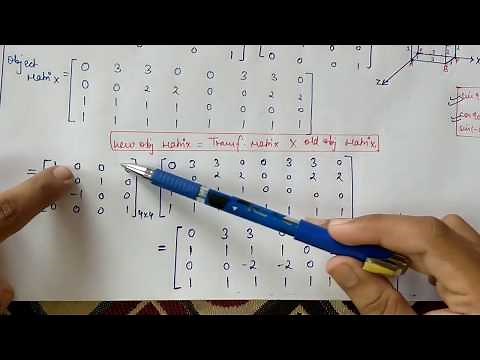 1
0 0 1
Object
Matrix = 0 3 3 0 0 3 3 0
0 0 2 2 0 0 2 2
1 1 1 1 0 0 0 0
1 1 1 1 1 1 1 1
New Obj Matrix = Transf. Matrix X Old obj Matrix.
z
= 1 0 0
0 1 0
-1 0 0
0 0 0 1 4x4
0 3 3 0 0 3 3 0
0 2 2 0 0 2 2
1 1
= 0 3 3
1 1 1 1 0
0 0 -2 -2 0
1 1 1 1 1 1